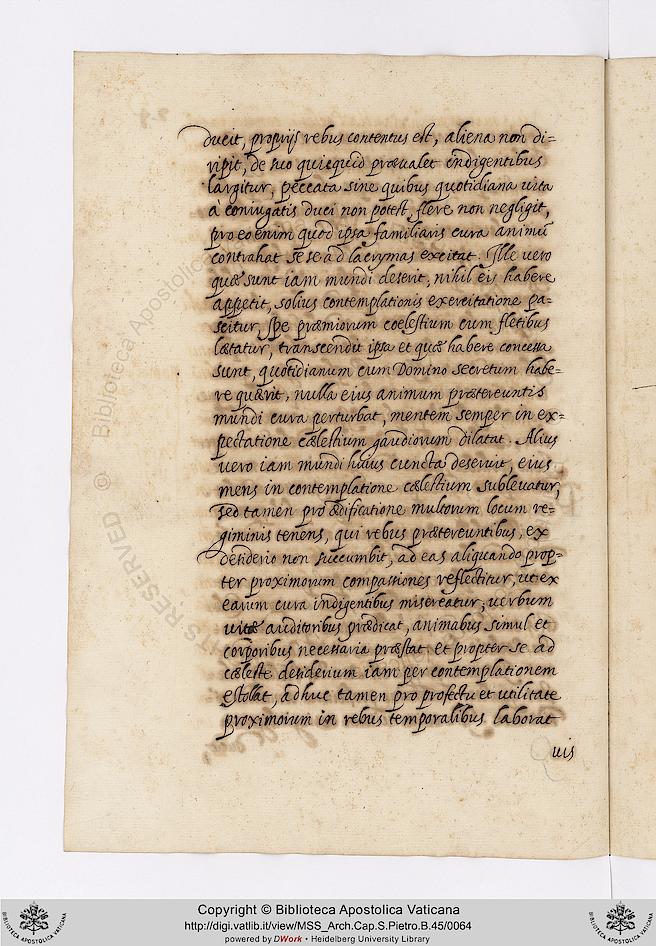 ducit, proprijs rebus contentus est, aliena non di=
ripit, de suo quicquid præualet indigentibus
largitur, peccata sine quibus quotidiana uita
à coniugatis duci non potest, flere non negligit,
pro eo enim quod ipsa familiaris cura animũ
contrahat se se ad lacrymas excitat. Ille uero
quæ sunt iam mundi deserit, nihil eis habere
appetit, solius contemplationis exercitatione pa=
scitur, spe præmiorum coelestium cum fletibus
lætatur, transcendit ipsa et quæ habere concessa
sunt, quotidianum cum Domino secretum habe=
re quærit, nulla eius animum prætereuntis
mundi cura perturbat, mentem semper in ex=
pectatione cælestium gaudiorum dilatat. Alius
uero iam mundi huius cuncta deseruit, eius
mens in contemplatione cælestium subleuatur,
sed tamen pro ædificatione multorum locum re=
giminis tenens, qui rebus prætereuntibus, ex
desiderio non succumbit, ad eas aliquando prop=
ter proximorum compassiones reflectitur, ut ex
earum cura indigentibus misereatur, uerbum
uitæ auditoribus prædicat, animabus simul et
corporibus necessaria præstat. et propter se ad
cæleste desiderium iam per contemplationem
estollat, adhuc tamen pro profectu et utilitate
proximorum in rebus temporalibus laborat
uis
© Biblioteca Apostolica
RESERVED
Copyright © Biblioteca Apostolica Vaticana
http://digi.vatlib.it/view/MSS_Arch.Cap.S.Pietro.B.45/0064
powered by DWork • Heidelberg University Library